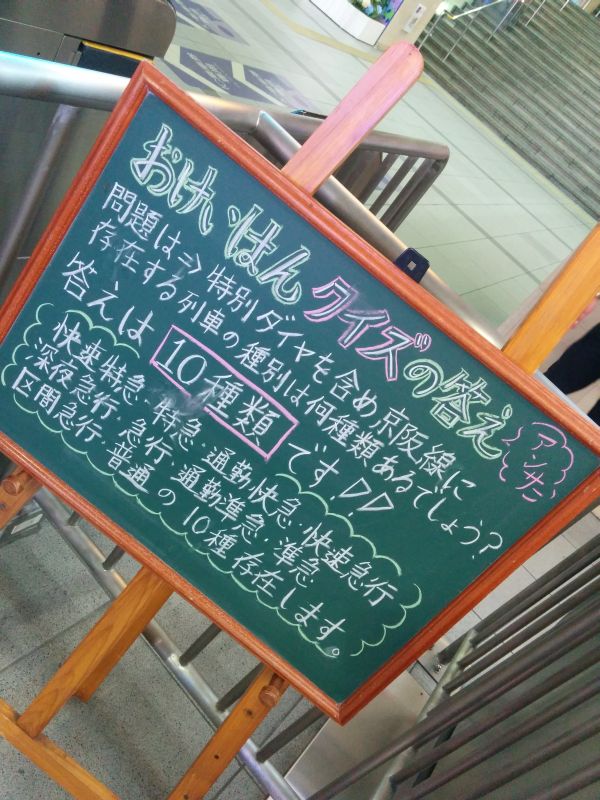 おけいはんクイズの答え
アンサー
問題は⇒特別ダイヤを含め京阪線に
存在する列車の種別は何種類あるでしょう?
答えは 10種類 です!!
快速特急・特急・通勤快急・快速急行
深夜急行・急行・通勤準急・準急・
区間急行・普通の10種存在します。